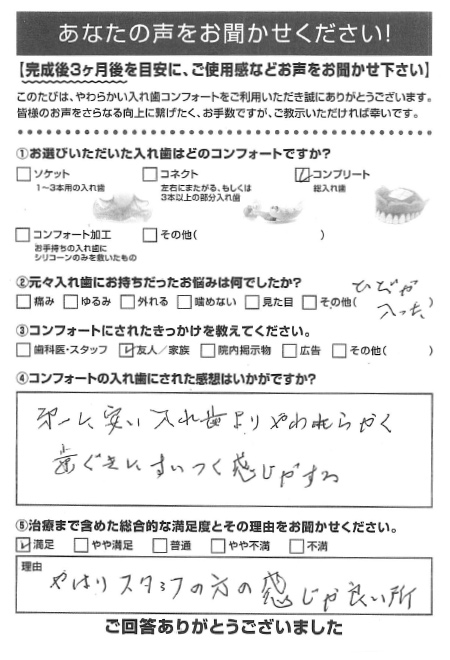 あなたの声をお聞かせください!
【完成後3ヶ月後を目安に、ご使用感などお声をお聞かせ下さい】
このたびは、やわらかい入れ歯コンフォートをご利用いただき誠にありがとうございます。
皆様のお声をさらなる向上に繋げたく、お手数ですが、ご教示いただければ幸いです。
①お選びいただいた入れ歯はどのコンフォートですか?
□ソケット □コネクト ☑コンプリート
1〜3本用の入れ歯 左右にまたがる、もしくは 総入れ歯
3本以上の部分入れ歯
□コンフォート加工 □その他( )
お手持ちの入れ歯に
シリコーンのみを敷いたもの
②元々入れ歯にお持ちだったお悩みは何でしたか?
□痛み □ゆるみ □外れる □噛めない □見た目 □その他(ひびが入った)
③コンフォートにされたきっかけを教えてください。
□歯科医・スタッフ ☑友人/家族 □院内掲示物 □広告 □その他( )
④コンフォートの入れ歯にされた感想はいかがですか?
第一に安い入れ歯よりやわらかく
歯ぐきにすいつく感じがする
⑤治療まで含めた総合的な満足度とその理由をお聞かせください。
☑満足 □やや満足 □普通 □やや不満 □不満
理由
やはりスタッフの方の感じが良い所
ご回答ありがとうございました